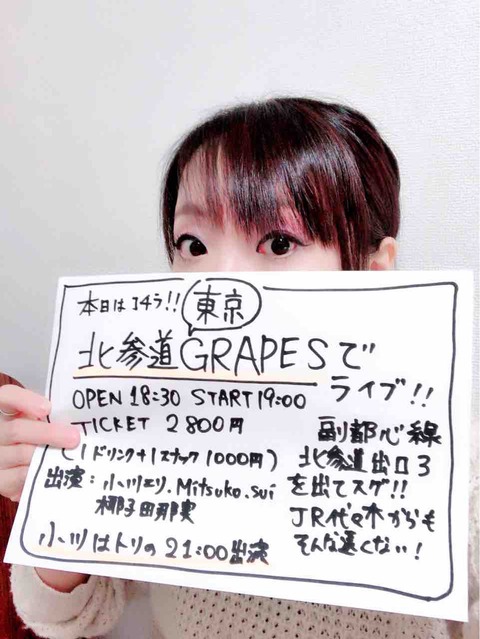 本日はコチラ!! 東京
北参道GRAPESで
ライブ!!
OPEN 18:30 START 19:00
TICKET 2800円
(1ドリンク+1スナック1000円)
出演:小川エリ.Mitsuko.sui
椰子田那実
小川はトリの21:00出演
副都心線
北参道出口3
を出てスグ!!
JR代々木からも
そんな遠くない!